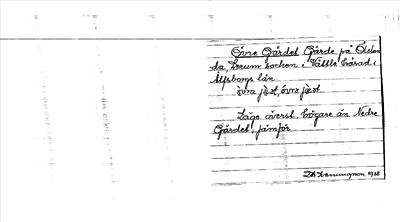 Övre Gärdet Gärde på Ölslan
da, Lerum socken i Vättle härad i
Älfsborgs län
övra jäst, övre jäst
Läge överst, högare än Nedre
Gärdet, jämför
1918